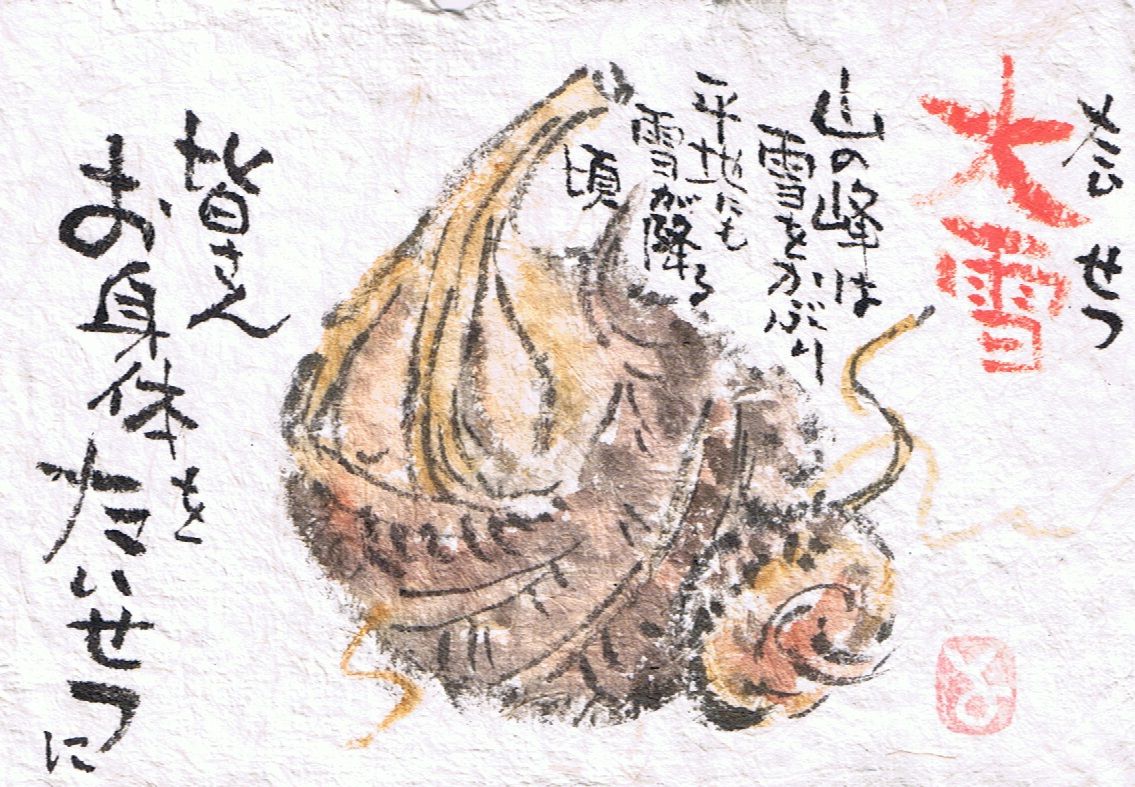 たい せつ
大雪
山の峰は
雪をかぶり
平地にも
雪が降る
頃
皆さん
お身体を
たいせつに